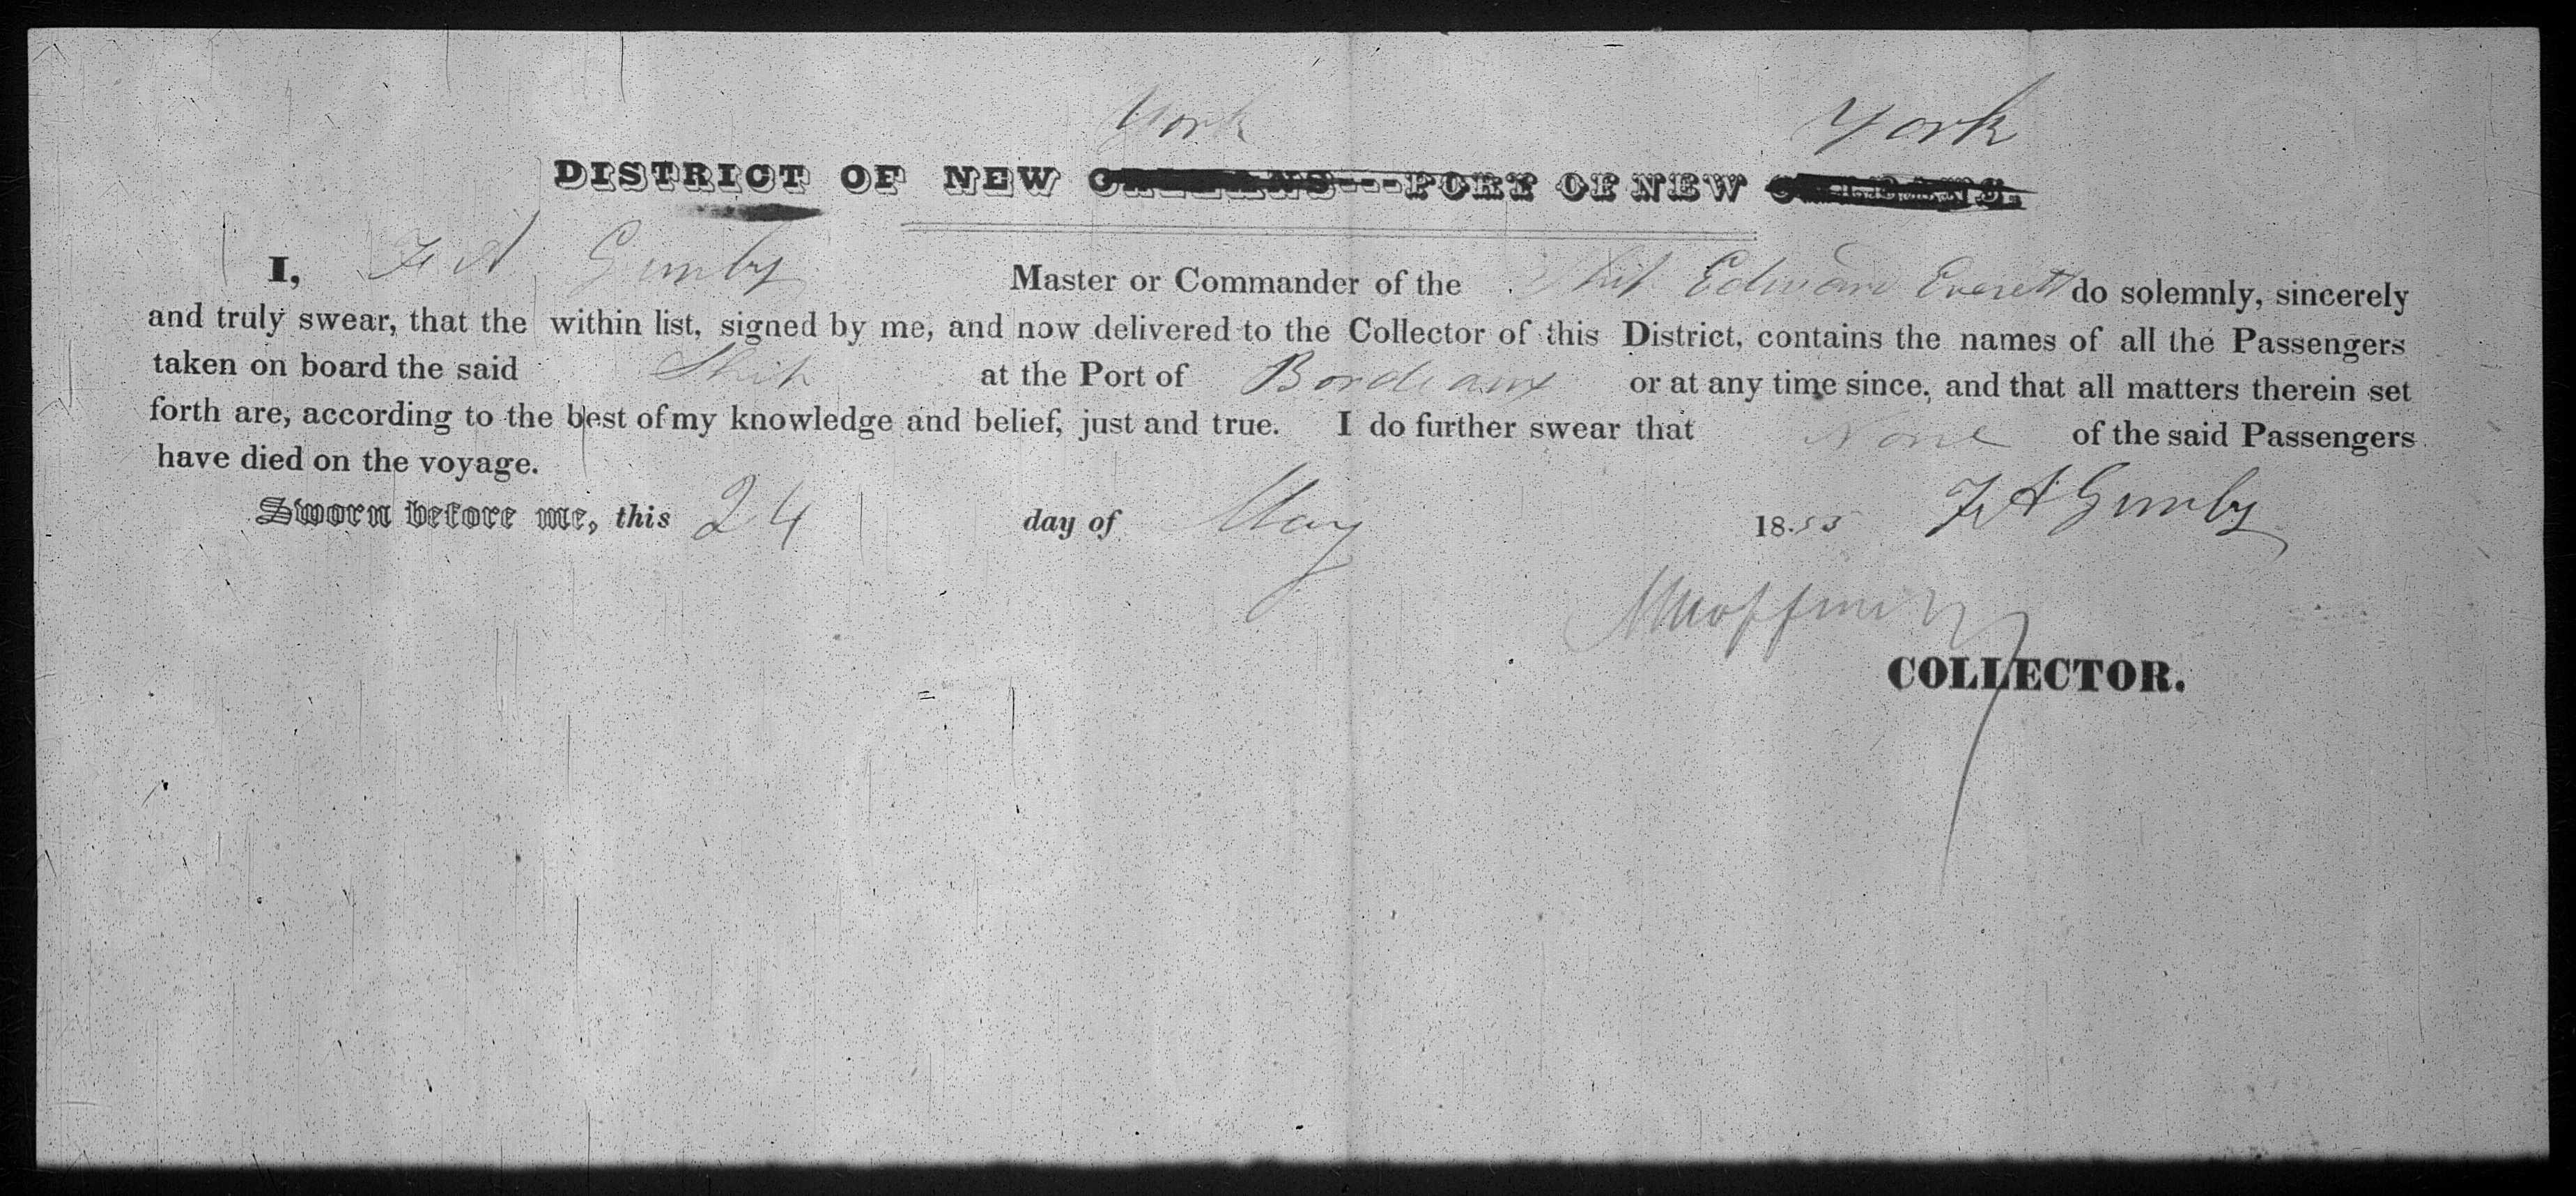 York York
DISTRICT OF NEW ORLEANS---PORT OF NEW ORLEANS.
I, F A Gunby Master or Commander of the Ship Edward Everett do solemnly, sincerely
and truly swear, that the within list, signed by me, and now delivered to the Collector of this District, contains the names of all the Passengers
taken on board the said Ship at the Port of Bordeaux or at any time since, and that all matters therein set
forth are, according to the best of my knowledge and belief, just and true. I do further swear that None of the said Passengers
have died on the voyage.
Sworn before me, this 24 day of May 1855 F A Gunby
COLLECTOR.